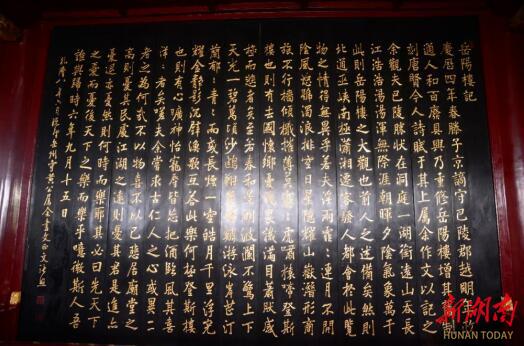 岳陽樓記
慶曆四年春滕子京謫守巴陵郡越明年政
通人和百廢具興乃重修岳陽樓增其舊制
刻唐賢今人詩賦于其上屬余作文以記之
余觀夫巴陵勝狀在洞庭一湖銜遠山吞長
江浩浩湯湯渾無際涯朝暉夕陰氣象萬千
此則岳陽樓之大觀也前人之述備矣然則
北通巫峽南極瀟湘遷客騷人都會於此覽
物之情得無異乎若夫淫雨霏霏連月不開
陰風怒號濁浪排空日星隱耀山嶽潛形商
旅不行檣傾楫摧薄暮冥冥虎嘯猿啼登斯
樓也則有去國懷鄉憂讒畏譏滿目蕭然感
極而悲者矣至若春和景明波瀾不驚上下
天光一碧萬頃沙鷗翔集錦鱗游泳岸芷汀
蘭郁郁青青而或長煙一空皓月千里浮光
耀金靜影沉璧漁歌互答此樂何極登斯樓
也則有心曠神怡寵辱皆忘把酒臨風其喜
洋洋者矣嗟夫余嘗求古仁人之心或異二
者之為何哉不以物喜不以己悲居廟堂之
高則憂其民處江湖之遠則憂其君是進亦
憂退亦憂然則何時而樂耶其必曰先天下
之憂而憂後天下之樂而樂乎噫微斯人吾
誰與歸時六年九月十五日
新湖南
HUNAN TODAY